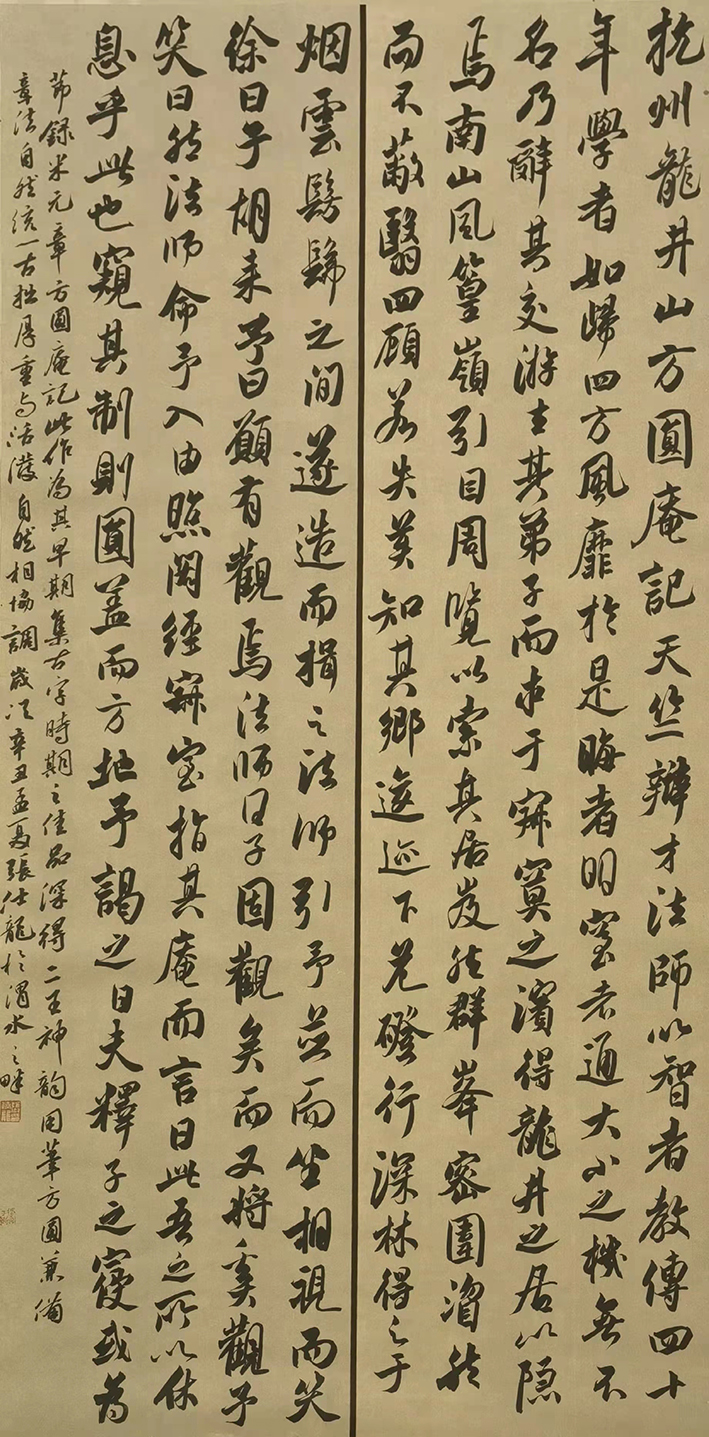 杭州龍井山方圓庵記天竺辯才法師以智者教傳四十
年學者如歸四方風靡於是晦者明窒者通大小之機無不
名乃辭其交游去其弟子而求于寂寞之濱得龍井之居以隱
焉南山風篁嶺引目周覽以索其居岌然群峯密圍溜然
而不蔽翳四顧若失莫知其鄉逡巡下危磴行深林得之于
烟雲髣髴之間遂造而揖之法師引予並而坐相視而笑
徐曰子胡来予曰願有觀焉法師曰子固觀矣而又將奚觀予
笑曰然法師命予入由照閣經寂室指其庵而言曰此吾之所以休
息乎此也窺其制則圓盖而方地予謁之曰夫釋子之寢或為
節録米元章方圓庵記此作為其早期集古字時期之佳品深得二王神韵用筆方圓兼備
章法自然統一古拙厚重与活潑自然相協調歲次辛丑孟夏張仕龍於渭水之畔